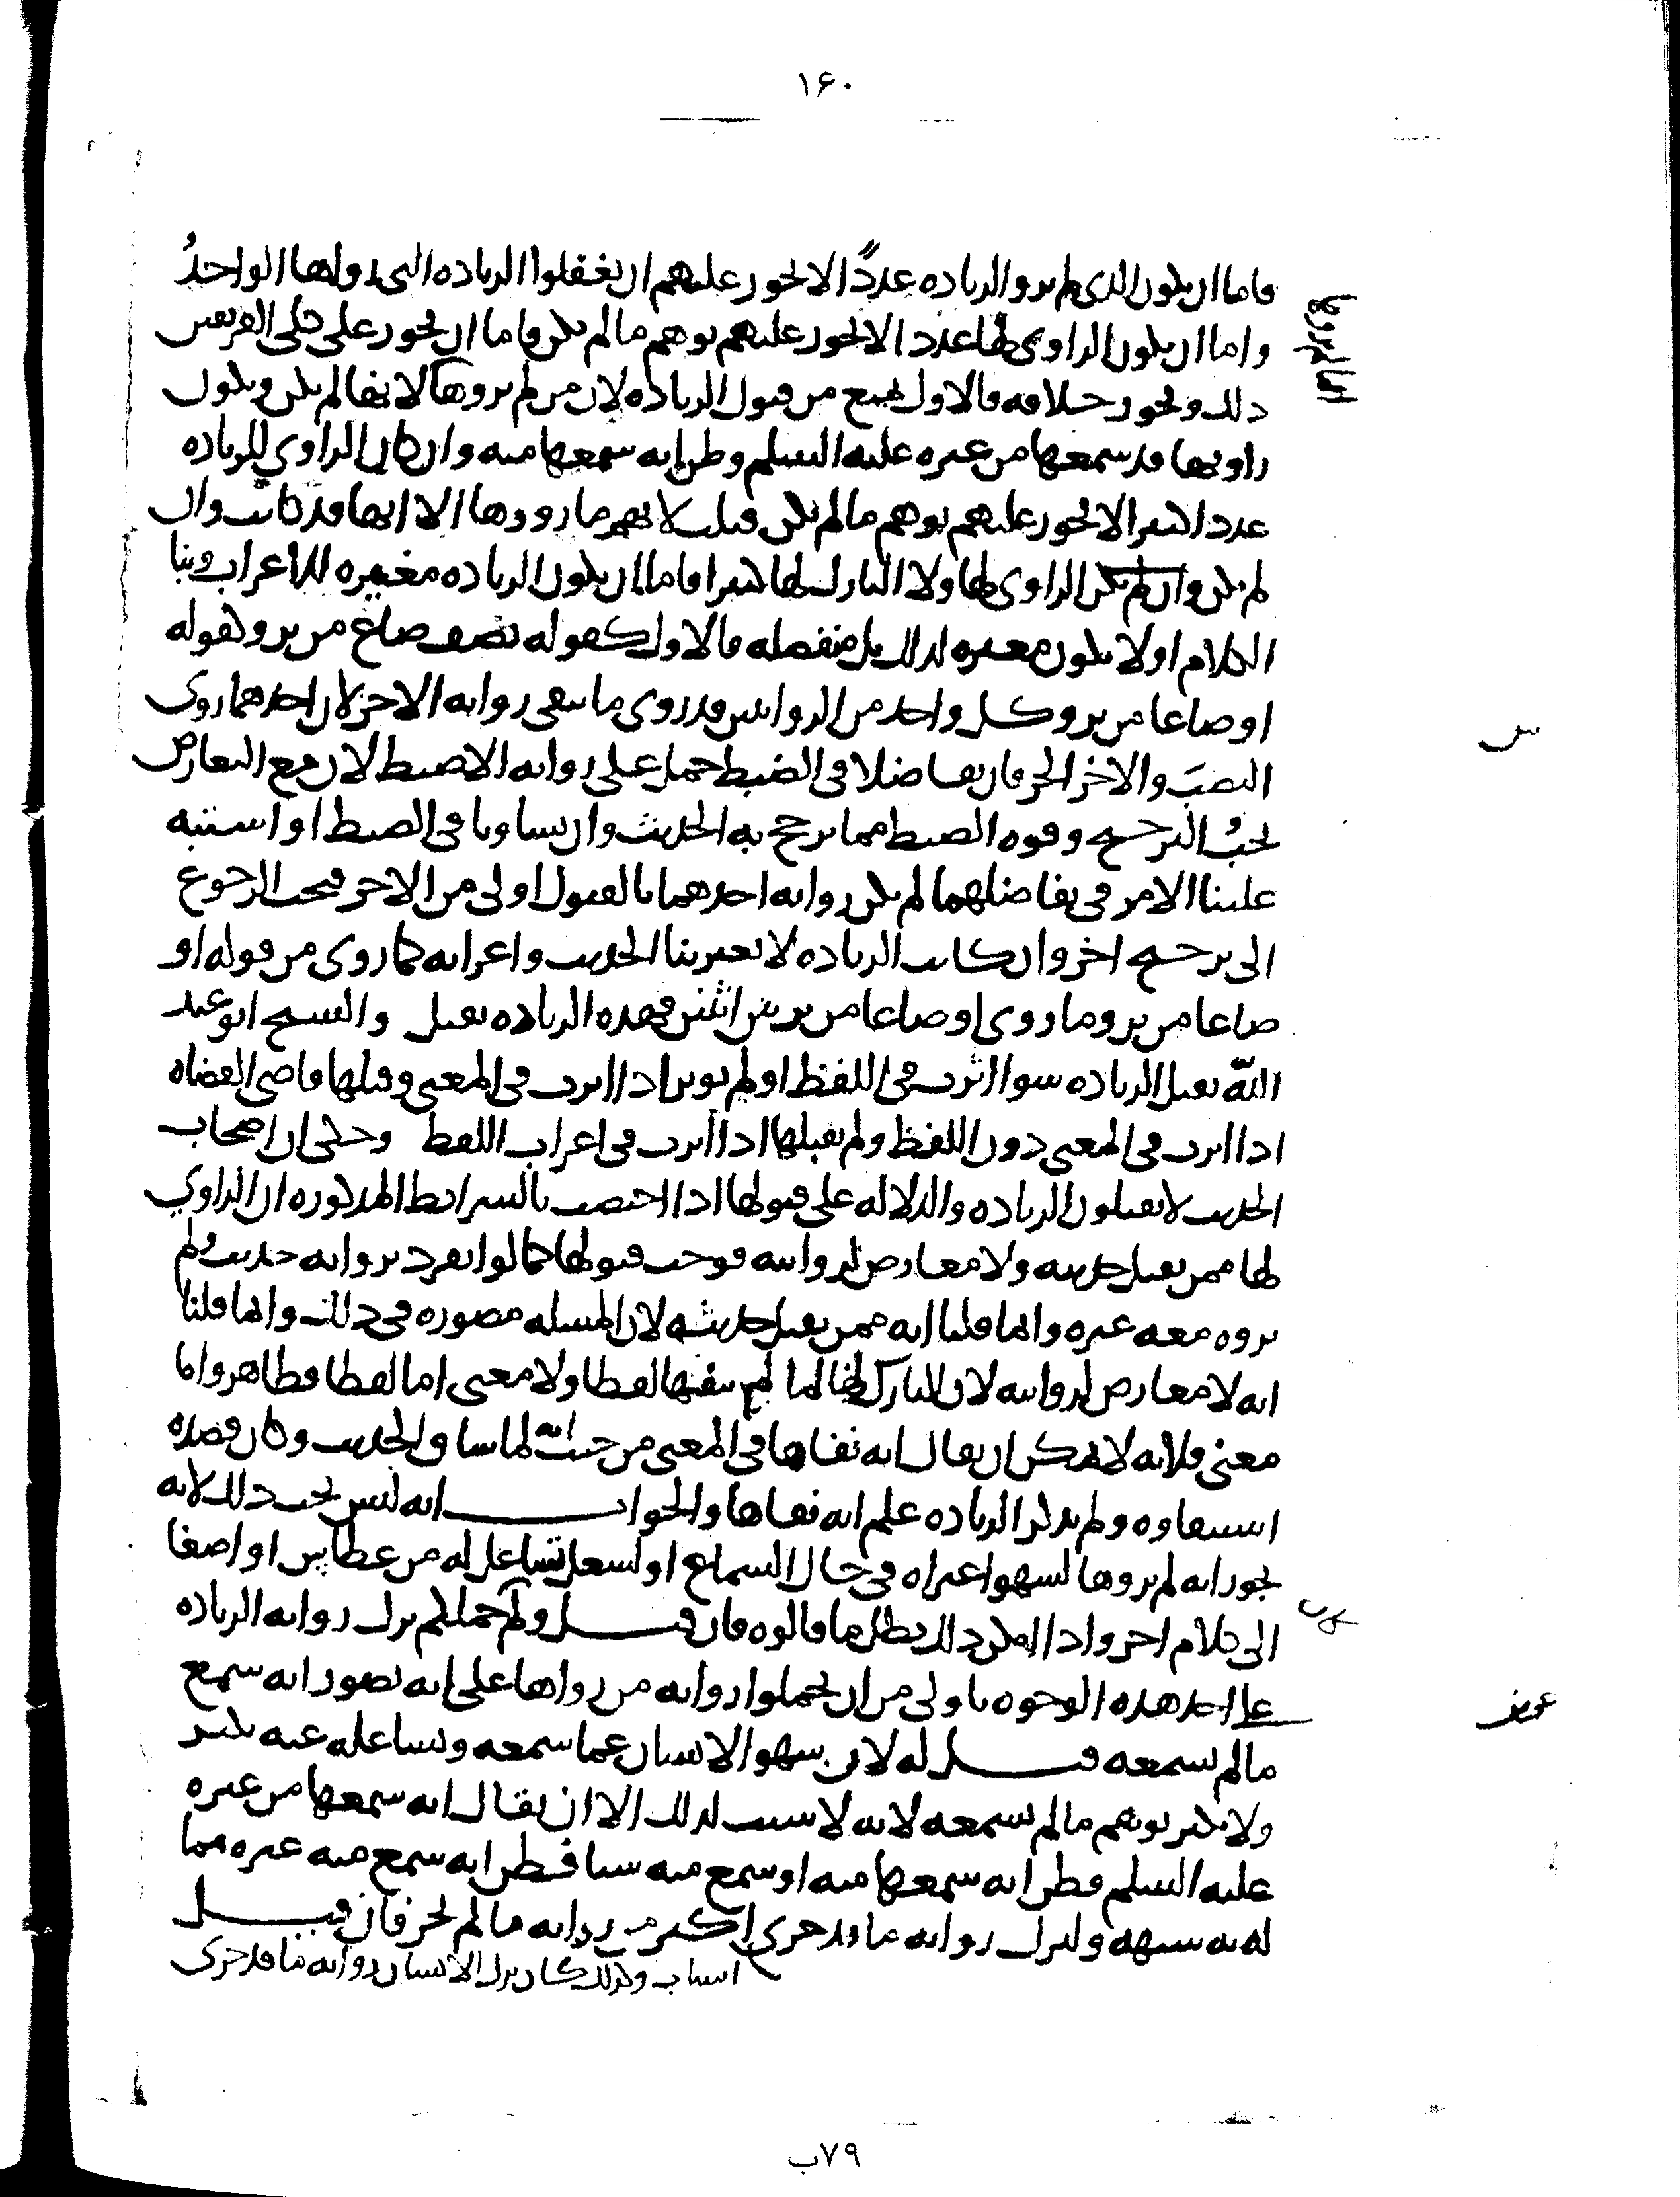 ١۶٠
فاما ان يكون الذي لم يرو الزياده عددًا لا يجوز عليهم ان يغفلوا الزياده التي رواها الواحدُ
واما ان يكون الراوي لها عددا لا يجوز عليهم توهم ما لم يكن واما ان يجوز على كلى الفريقين
ذلك ويجوز خلافه فالاول يمنع من قبول الزياده لان من لم يروها لا بها لم يكن ويكون
راويها قد سمعها من غيره عليه السلم وظن انه سمعها منه وان كان الراوي للزياده
عددا كثيرا لا يجوز عليهم توهم ما لم يكن قبلت لانهم ما رووها الا انها قد كانت وان
لم يكن وان لم يكن الراوي لها ولا التارك لها كثيرا فاما ان يكون الزياده مغيره للاعراب وبنا
الكلام او لا يكون مغيره لذلك بل منفصله فالاول كقوله نصف صاع من بر وكقوله
او صاعا من بر وكل واحد من الروايتين قد روى ما ينفي روايه الاخر لان احدهما روى
النصبَ والاخر الجر فان تفاضلا في الضبط حمل على روايه الاضبط لان مع التعارض
يجبُ الترجيح وقوه الضبط مما يرجح به الحديث وان تساويا في الضبط او اشتبه
علينا الامر في تفاضلهما لم يكن روايه احدهما بالقبول اولى من الاخر فيجب الرجوع
الى ترجيح اخر وان كانت الزياده لا تغير بنا الحديث واعرابه كما روى من قوله او
صاعا من بر وما روى او صاعا من بر بين اثنين فهذه الزياده تقبل والشيخ ابو عبد
اللّه يقبل الزياده سوا اثرت في اللفظ او لم توثر اذا اثرت في المعنى وقبلها قاضي القضاه
اذا اثرت في المعنى دون اللفظ ولم يقبلها اذا اثرت في اعراب اللفظ وحكى ان اصحاب
الحديث لا يقبلون الزياده والدلاله على قبولها اذا اختصت بالشرائط المذكوره ان الراوي
لها ممن يقبل حديثه ولا معارض لروايته فوجب قبولها كما لو انفرد بروايه حديث ولم
يروه معه غيره وانما قلنا انه ممن يقبل حديثه لان المسله مصوره في ذلك وانما قلنا
انه لا معارض لروايته لان التارك لها لم ينفها لفظا ولا معنى اما لفظا فظاهر واما
معنى فلانه لا يمكن ان يقال انه نفاها في المعنى من حيث انه لما ساق الحديث وكان قصده
استيفاوه ولم يذكر الزياده علم انه نفاها والجواب انه ليس يجب ذلك لانه
يجوز انه لم يروها لسهو اعتراه في حال السماع او لشغل تشاغل له من عطاس او اصغا
الى كلام اخر واذا امكن ذلك بطل ما قالوه فان قيل ولم حملكم ترك روايه الزياده
على احد هذه الوجوه باولى من ان يحملوا روايه من رواها على انه تصور انه سمع
ما لم يسمعه قيل له لان سهو الانسان عما سمعه وتشاغله عنه يكثر
ولا يكثر توهم ما لم يسمعه لانه لا سبب لذلك الا ان يقال انه سمعها من غيره
عليه السلم فظن انه سمعها منه او سمع منه شيا فظن انه سمع منه غيره مما
له به شبهه ولترك روايه ما قد جرى اكثر من روايه ما لم يجر فان قيل
اسباب وكذلك كان ترك الانسان روايه ما قد جرى
٧٩ب